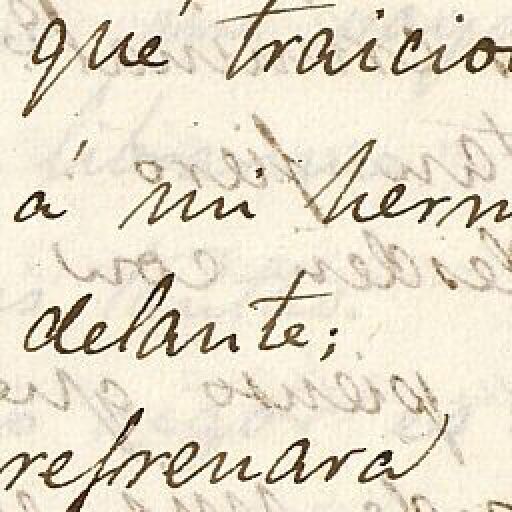 qué traicio
á mi herm
delante;
refrenara